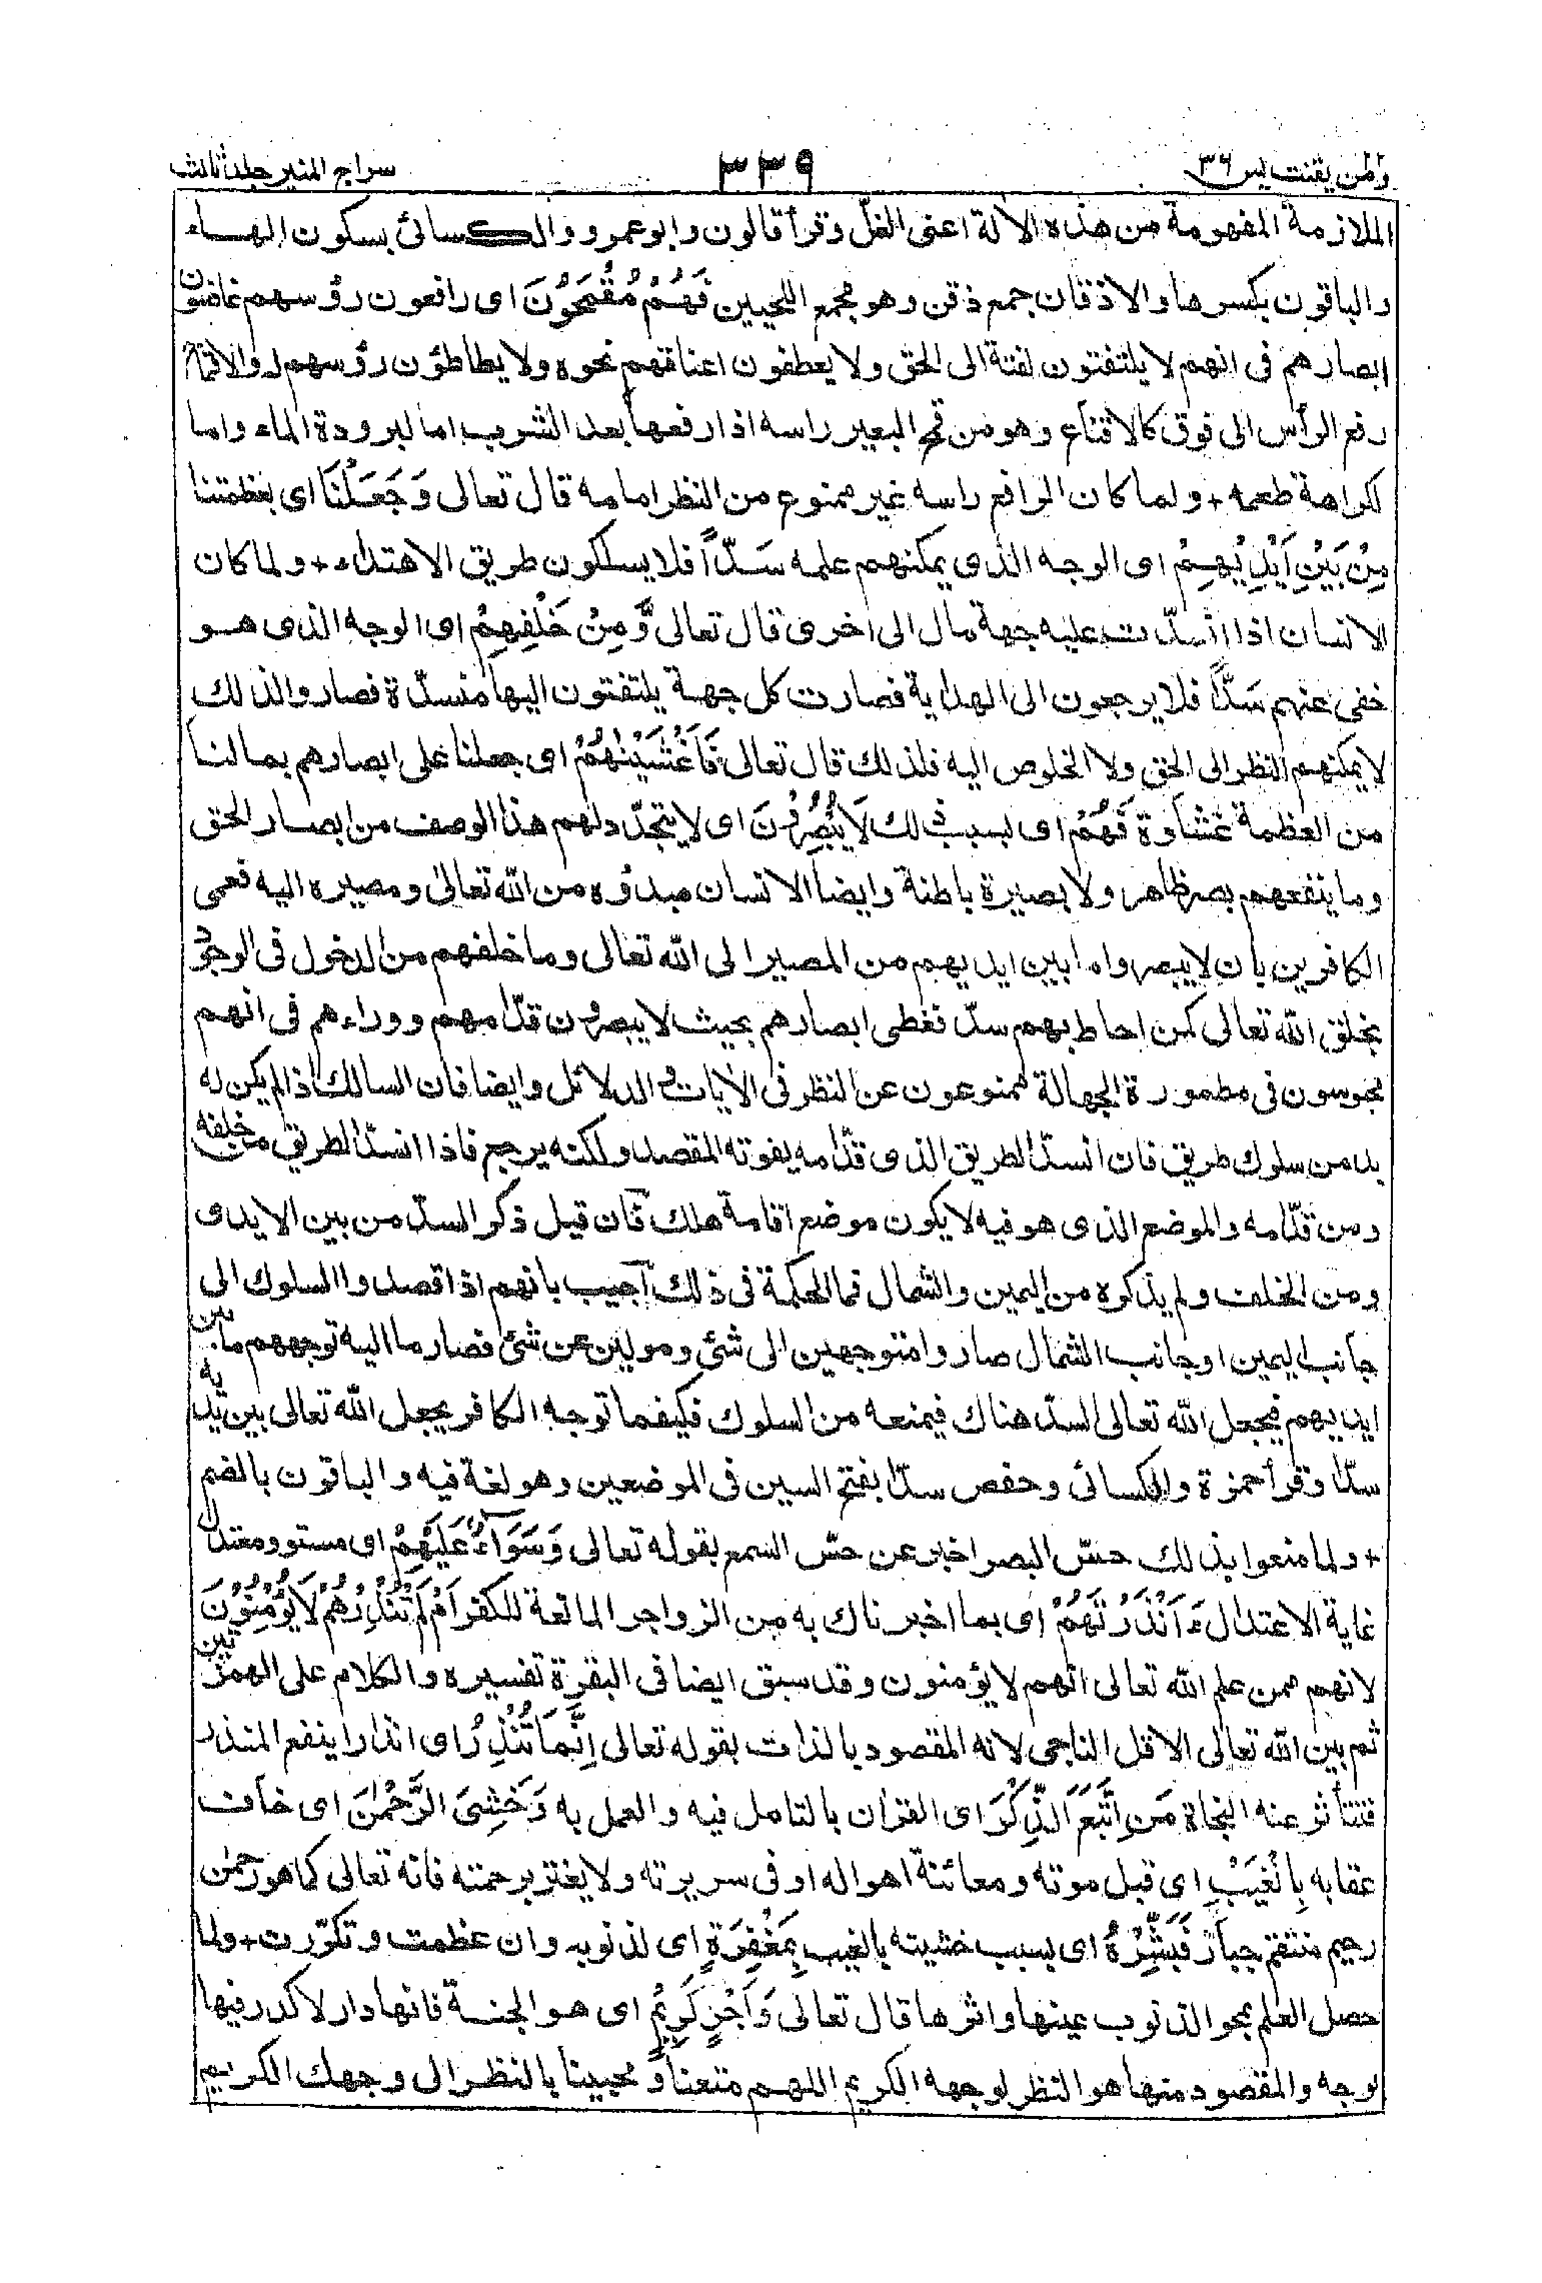 ومن يقنت يس ٣٦
٣٣٩
سراج المنير جلد ثالث
الملازمة المفهومة من هذه الالة اعنى الغلّ وقرأ قالون وابو عمرو والكسائى بسكون الهاء
والباقون بكسرها والاذقان جمع ذقن وهو مجمع اللحيين فَهُمْ مُقْمَحُوْنَ اى رافعون رؤسهم غاضون
ابصارهم فى انهم لا يلتفتون لفتة الى الحق ولا يعطفون اعناقهم نحوه ولا يطاطئون رؤسهم له والاقماح
رفع الرأس الى فوق كالاقناع وهو من قمح البعير راسه اذا رفعها بعد الشرب اما لبرودة الماء واما
لكراهة طعمه + ولما كان الرافع راسه غير ممنوع من النظر امامه قال تعالى وَجَعَلْنَا اى بعظمتنا
مِنْ بَيْنِ اَيْدِيْهِمْ اى الوجه الذى يمكنهم علمه سَدّاً فلا يسلكون طريق الاهتداء + ولما كان
الانسان اذا انسدّت عليه جهة مال الى اخرى قال تعالى وَّمِنْ خَلْفِهِمْ اى الوجه الذى هو
خفى عنهم سَدًّا فلا يرجعون الى الهداية فصارت كل جهة يلتفتون اليها منسدّة فصاروا لذلك
لا يمكنهم النظر الى الحق ولا الخلوص اليه فلذلك قال تعالى فَاَغْشَيْنٰهُمْ اى جعلنا على ابصارهم بمالنا
من العظمة غشاوة فَهُمْ اى بسبب ذلك لَا يُبْصِرُوْنَ اى لا يتجدّد لهم هذا الوصف من ابصار الحق
وما ينفعهم بصر ظاهر ولا بصيرة باطنة وايضا الانسان مبدؤه من الله تعالى ومصيره اليه فعمى
الكافرين بان لا يبصروا ما بين ايديهم من المصير الى الله تعالى وما خلفهم من الدخول فى الوجود
بخلق الله تعالى كمن احاط بهم سدّ فغطى ابصارهم بحيث لا يبصرون قدّامهم ووراءهم فى انهم
محبوسون فى مطمورة الجهالة ممنوعون عن النظر فى الآيات والدلائل وايضا فان السالك اذا لم يكن له
بد من سلوك طريق فان انسدّ الطريق الذى قدّامه يفوته المقصد ولكنه يرجع فاذا انسدّ الطريق من خلفه
ومن قدّامه والموضع الذى هو فيه لا يكون موضع اقامة هلك فان قيل ذكر السدّ من بين الايدى
ومن الخلف ولم يذكره من اليمين والشمال فما الحكمة فى ذلك اجيب بانهم اذا قصدوا السلوك الى
جانب اليمين او جانب الشمال صاروا متوجهين الى شئ ومولين عن شئ فصار ما اليه توجههم ما بين
ايديهم فيجعل الله تعالى السدّ هناك فيمنعه من السلوك فكيفما توجه الكافر يجعل الله تعالى بين يديه
سدّا وقرأ حمزة والكسائى وحفص سدّا بفتح السين فى الموضعين وهو لغة فيه والباقون بالضم
+ ولما منعوا بذلك حسّ البصر اخبر عن حسّ السمع بقوله تعالى وَسَوَآءٌ عَلَيْهِمْ اى مستو ومعتدل
غاية الاعتدال ءَاَنْذَرْتَهُمْ اى بما اخبرناك به من الزواجر المانعة للكفر اَمْ لَمْ تُنْذِرْهُمْ لَا يُؤْمِنُوْنَ
لانهم ممن علم الله تعالى انهم لا يؤمنون وقد سبق ايضا فى البقرة تفسيره والكلام على الهمزتين
ثم بين الله تعالى الاقل الناجى لانه المقصود بالذات بقوله تعالى اِنَّمَا تُنْذِرُ اى انذارا ينفع المنذر
فتتأثر عنه النجاة مَنِ اتَّبَعَ الذِّكْرَ اى القران بالتامل فيه والعمل به وَخَشِىَ الرَّحْمٰنَ اى خاف
عقابه بِالْغَيْبِ اى قبل موته ومعائنة اهواله او فى سريرته ولا يغتر برحمته فانه تعالى كما هو رحمٰن
رحيم منتقم جبار فَبَشِّرْهُ اى بسبب خشيته بالغيب بِمَغْفِرَةٍ اى لذنوبه وان عظمت وتكرّرت + ولما
حصل العلم بمحو الذنوب عينها واثرها قال تعالى وَاَجْرٍ كَرِيْمٍ اى هو الجنة فانها دار لا كدر فيها
بوجه والمقصود منها هو النظر لوجهه الكريم اللهم متعنا ومحبينا بالنظر الى وجهك الكريم